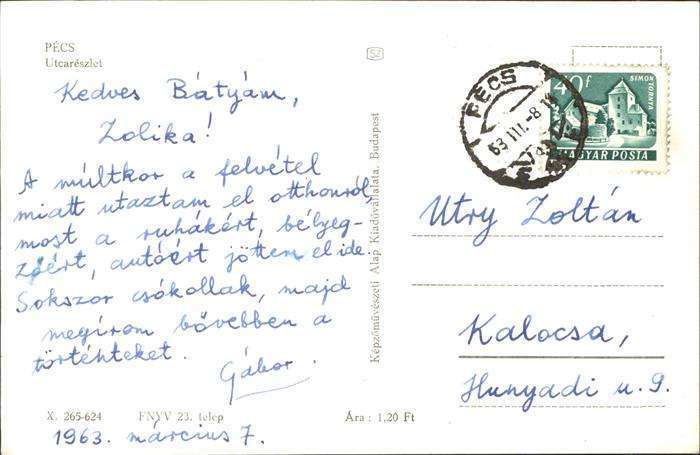 PÉCS
Utcarészlet
Kedves Bátyám,
Zolika!
A múltkor a felvétel
miatt utaztam el otthonról,
most a ruhákért, bélyeg-
zőért, autóért jöttem el ide.
Sokszor csókollak, majd
megírom bővebben a
történteket.
Gábor.
X. 265-624 FNYV 23. telep Ára: 1,20 Ft
1963. március 7.
Képzőművészeti Alap Kiadóvállalata, Budapest
SZ
PÉCS
63 III.-8.
40f
SIMON
TORNYA
MAGYAR POSTA
Utry Zoltán
Kalocsa,
Hunyadi u. 9.